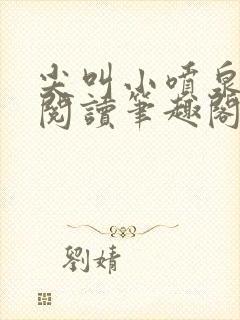 尖叫小噴泉
閱讀筆趣閣
劉婧